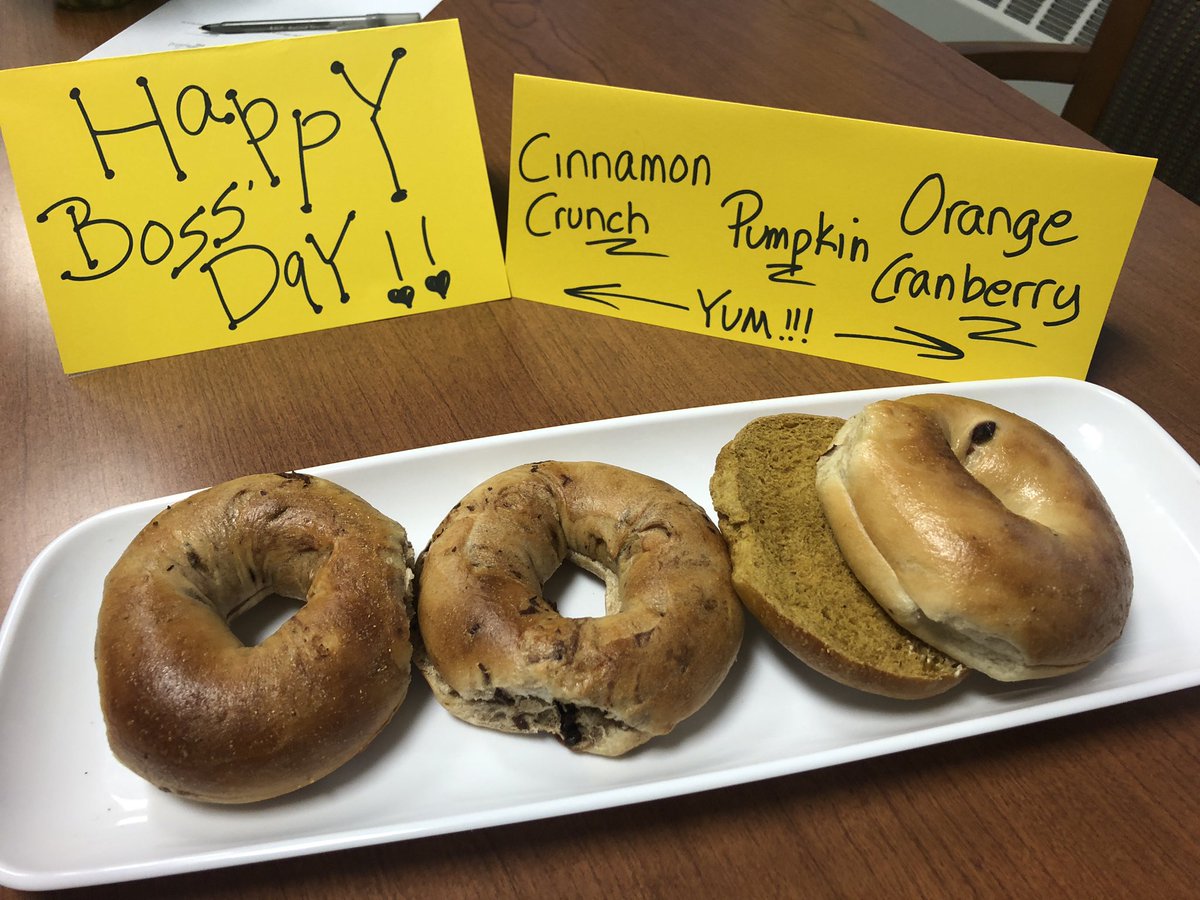 HappY
Boss'
DaY!!
Cinnamon
Crunch
Pumpkin
Orange
Cranberry
YUM!!!